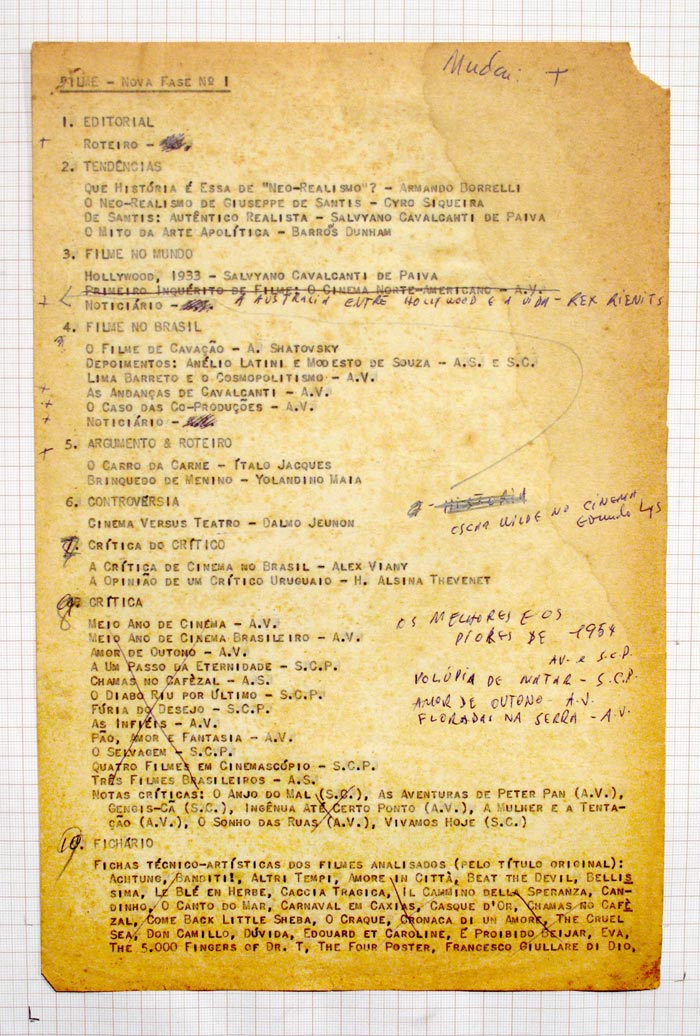 Mudar: +
FILME – NOVA FASE Nº 1
1. EDITORIAL
+ ROTEIRO –
2. TENDÊNCIAS
QUE HISTÓRIA É ESSA DE "NEO-REALISMO"? – ARMANDO BORRELLI
O NEO-REALISMO DE GIUSEPPE DE SANTIS – CYRO SIQUEIRA
DE SANTIS: AUTÊNTICO REALISTA – SALVYANO CAVALCANTI DE PAIVA
O MITO DA ARTE APOLÍTICA – BARROS DUNHAM
3. FILME NO MUNDO
HOLLYWOOD, 1933 – SALVYANO CAVALCANTI DE PAIVA
PRIMEIRO INQUÉRITO DE FILME: O CINEMA NORTE-AMERICANO – A.V.
+ NOTICIÁRIO – A AUSTRALIA ENTRE HOLLYWOOD E A VIDA – REX RIENITS
4. FILME NO BRASIL
O FILME DE CAVAÇÃO – A. SHATOVSKY
DEPOIMENTOS: ANÉLIO LATINI E MODESTO DE SOUZA – A.S. E S.C.
LIMA BARRETO E O COSMOPOLITISMO – A.V.
+ AS ANDANÇAS DE CAVALCANTI – A.V.
+ O CASO DAS CO-PRODUÇÕES – A.V.
+ NOTICIÁRIO –
+ 5. ARGUMENTO & ROTEIRO
O CARRO DA CARNE – ÍTALO JACQUES
BRINQUEDO DE MENINO – YOLANDINO MAIA
6. CONTROVÉRSIA
HISTÓRIA
OSCAR WILDE NO CINEMA
CINEMA VERSUS TEATRO – DALMO JEUNON
7. CRÍTICA DO CRÍTICO
A CRÍTICA DE CINEMA NO BRASIL – ALEX VIANY
A OPINIÃO DE UM CRÍTICO URUGUAIO – H. ALSINA THEVENET
8. CRÍTICA
MEIO ANO DE CINEMA – A.V.
MEIO ANO DE CINEMA BRASILEIRO – A.V.
AMOR DE OUTONO – A.V.
A UM PASSO DA ETERNIDADE – S.C.P.
CHAMAS NO CAFÈZAL – A.S.
O DIABO RIU POR ÚLTIMO – S.C.P.
FÚRIA DO DESEJO – S.C.P.
AS INFIÉIS – A.V.
PÃO, AMOR E FANTASIA – A.V.
O SELVAGEM – S.C.P.
QUATRO FILMES EM CINEMASCÓPIO – S.C.P.
TRÊS FILMES BRASILEIROS – A.S.
OS MELHORES E OS
PIORES DE 1954
AV. e S.C.P.
VOLÚPIA DE MATAR – S.C.P.
AMOR DE OUTONO – A.V.
FLORADAS NA SERRA – A.V.
NOTAS CRÍTICAS: O ANJO DO MAL (S.C.), AS AVENTURAS DE PETER PAN (A.V.),
GENGIS-CÃ (S.C.), INGÊNUA ATÉ CERTO PONTO (A.V.), A MULHER E A TENTA-
ÇÃO (A.V.), O SONHO DAS RUAS (A.V.), VIVAMOS HOJE (S.C.)
10. FICHÁRIO
FICHAS TÉCNICO-ARTÍSTICAS DOS FILMES ANALISADOS (PELO TÍTULO ORIGINAL):
ACHTUNG, BANDITI!, ALTRI TEMPI, AMORE IN CITTÀ, BEAT THE DEVIL, BELLIS
SIMA, LE BLÉ EN HERBE, CACCIA TRAGICA, IL CAMMINO DELLA SPERANZA, CAN-
DINHO, O CANTO DO MAR, CARNAVAL EM CAXIAS, CASQUE D'OR, CHAMAS NO CAFÈ
ZAL, COME BACK LITTLE SHEBA, O CRAQUE, CRONACA DI UN AMORE, THE CRUEL
SEA, DON CAMILLO, DÚVIDA, EDOUARD ET CAROLINE, É PROIBIDO BEIJAR, EVA,
THE 5.000 FINGERS OF DR. T, THE FOUR POSTER, FRANCESCO GIULLARE DI DIO,
L